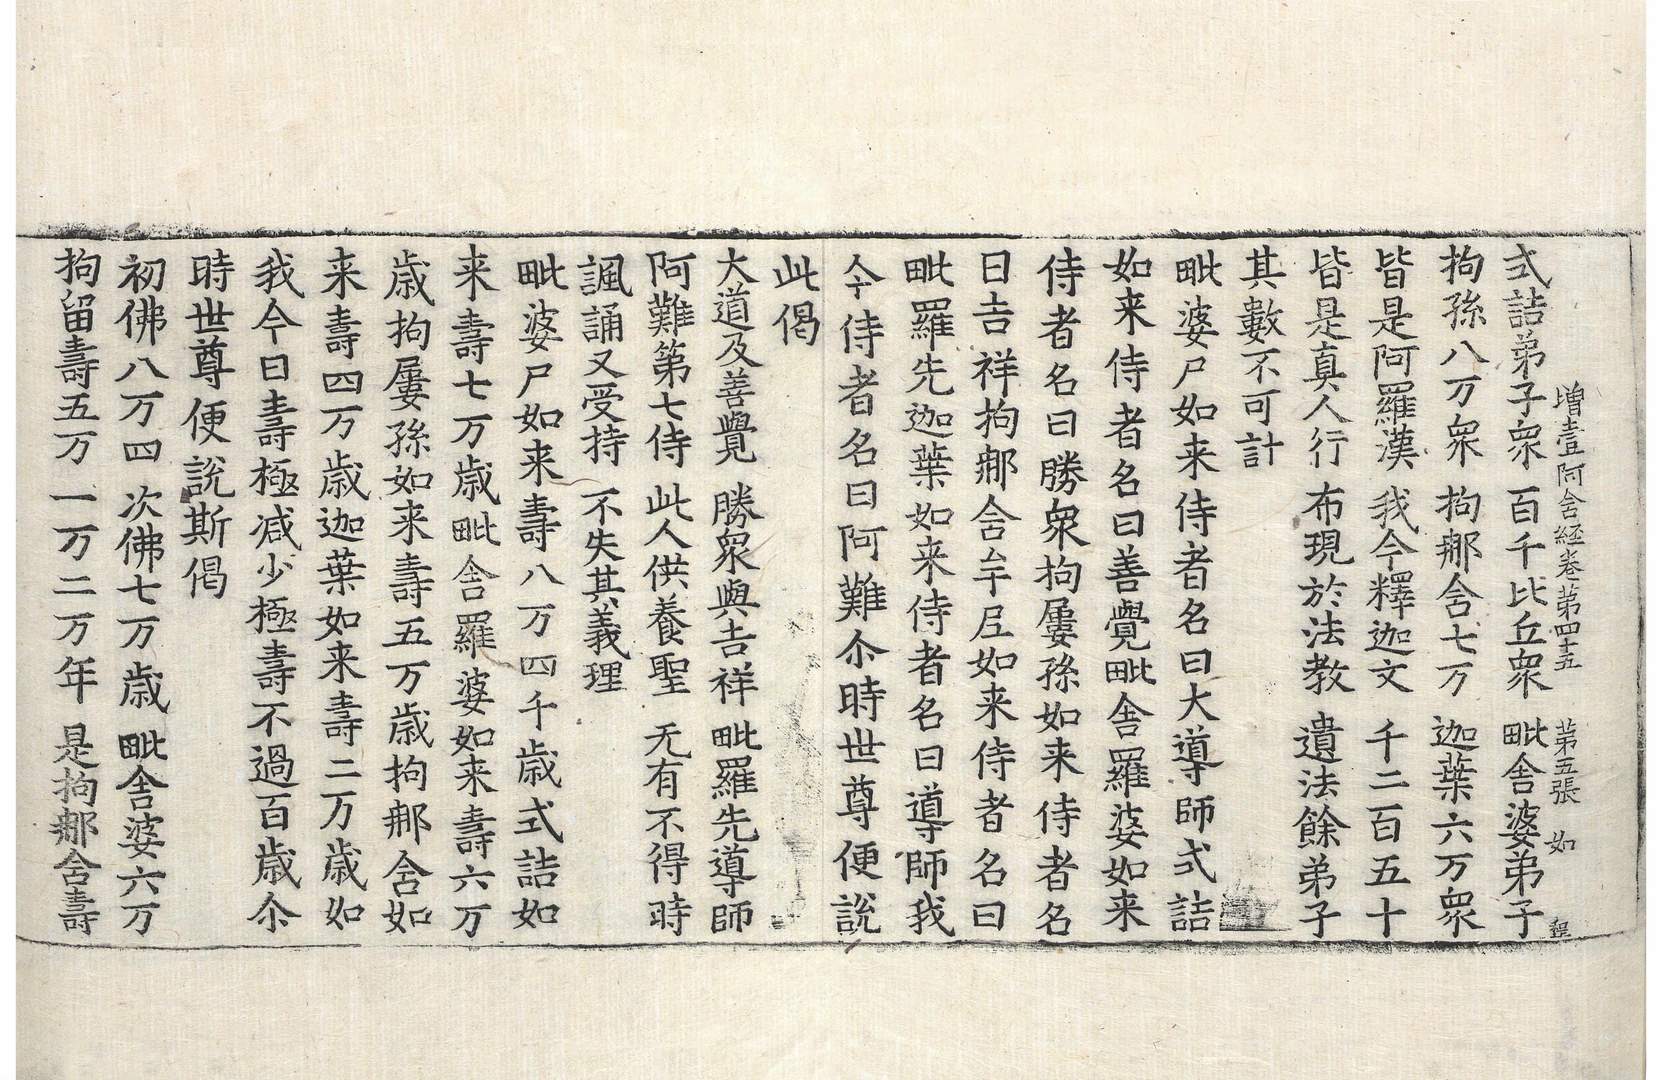 增壹阿含經卷第四十五 第五張 如
式詰弟子衆 百千比丘衆 毗舍婆弟子
拘孫八万衆 拘那含七万 迦葉六万衆
皆是阿羅漢 我今釋迦文 千二百五十
皆是真人行 布現於法教 遺法餘弟子
其數不可計
毗婆尸如来侍者名曰大導師式詰
如来侍者名曰善覺毗舍羅婆如来
侍者名曰勝衆拘屢孫如来侍者名
曰吉祥拘那含牟尼如来侍者名曰
毗羅先迦葉如来侍者名曰導師我
今侍者名曰阿難尒時世尊便說
此偈
大道及善覺 勝衆與吉祥 毗羅先導師
阿難第七侍 此人供養聖 无有不得時
諷誦又受持 不失其義理
毗婆尸如来壽八万四千歲式詰如
来壽七万歲毗舍羅婆如来壽六万
歲拘屢孫如来壽五万歲拘那含如
来壽四万歲迦葉如来壽二万歲如
我今日壽極减少極壽不過百歲尒
時世尊便說斯偈
初佛八万四 次佛七万歲 毗舍婆六万
拘留壽五万 一万二万年 是拘那含壽